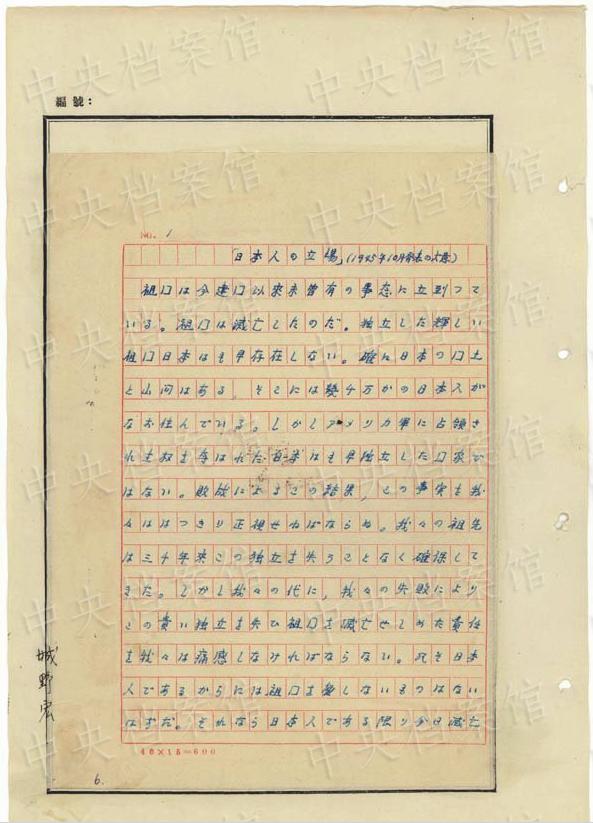 編號：
NO. 1
「日本人の立場」(1945年10月発表の大要)
祖口は今建口以来未曽有の事态に立到つて
いる。祖口は滅亡したのだ。独立した輝しい
祖口日本はも早存在しない。確に日本の口土
と山河はある。そこには幾千万かの日本人が
なお住んでいる。しかしアメリカ軍に占領さ
れ主权を奪はれた日本はも早独立した口家で
はない。敗战によるこの結果，この事実を我
々ははつきり正視せねばならぬ。我々の祖先
は三千年来この独立を失うことなく確保して
きた。しかし我々の代に，我々の失敗により
この貴い独立を失ひ祖口を滅亡せしめた責任
を我々は痛感しなければならない。凡そ日本
人であるからには祖口を愛しないものはない
はずだ。それなら日本人である限り今日滅亡
40×15=600
城野宏
6.
中央档案馆